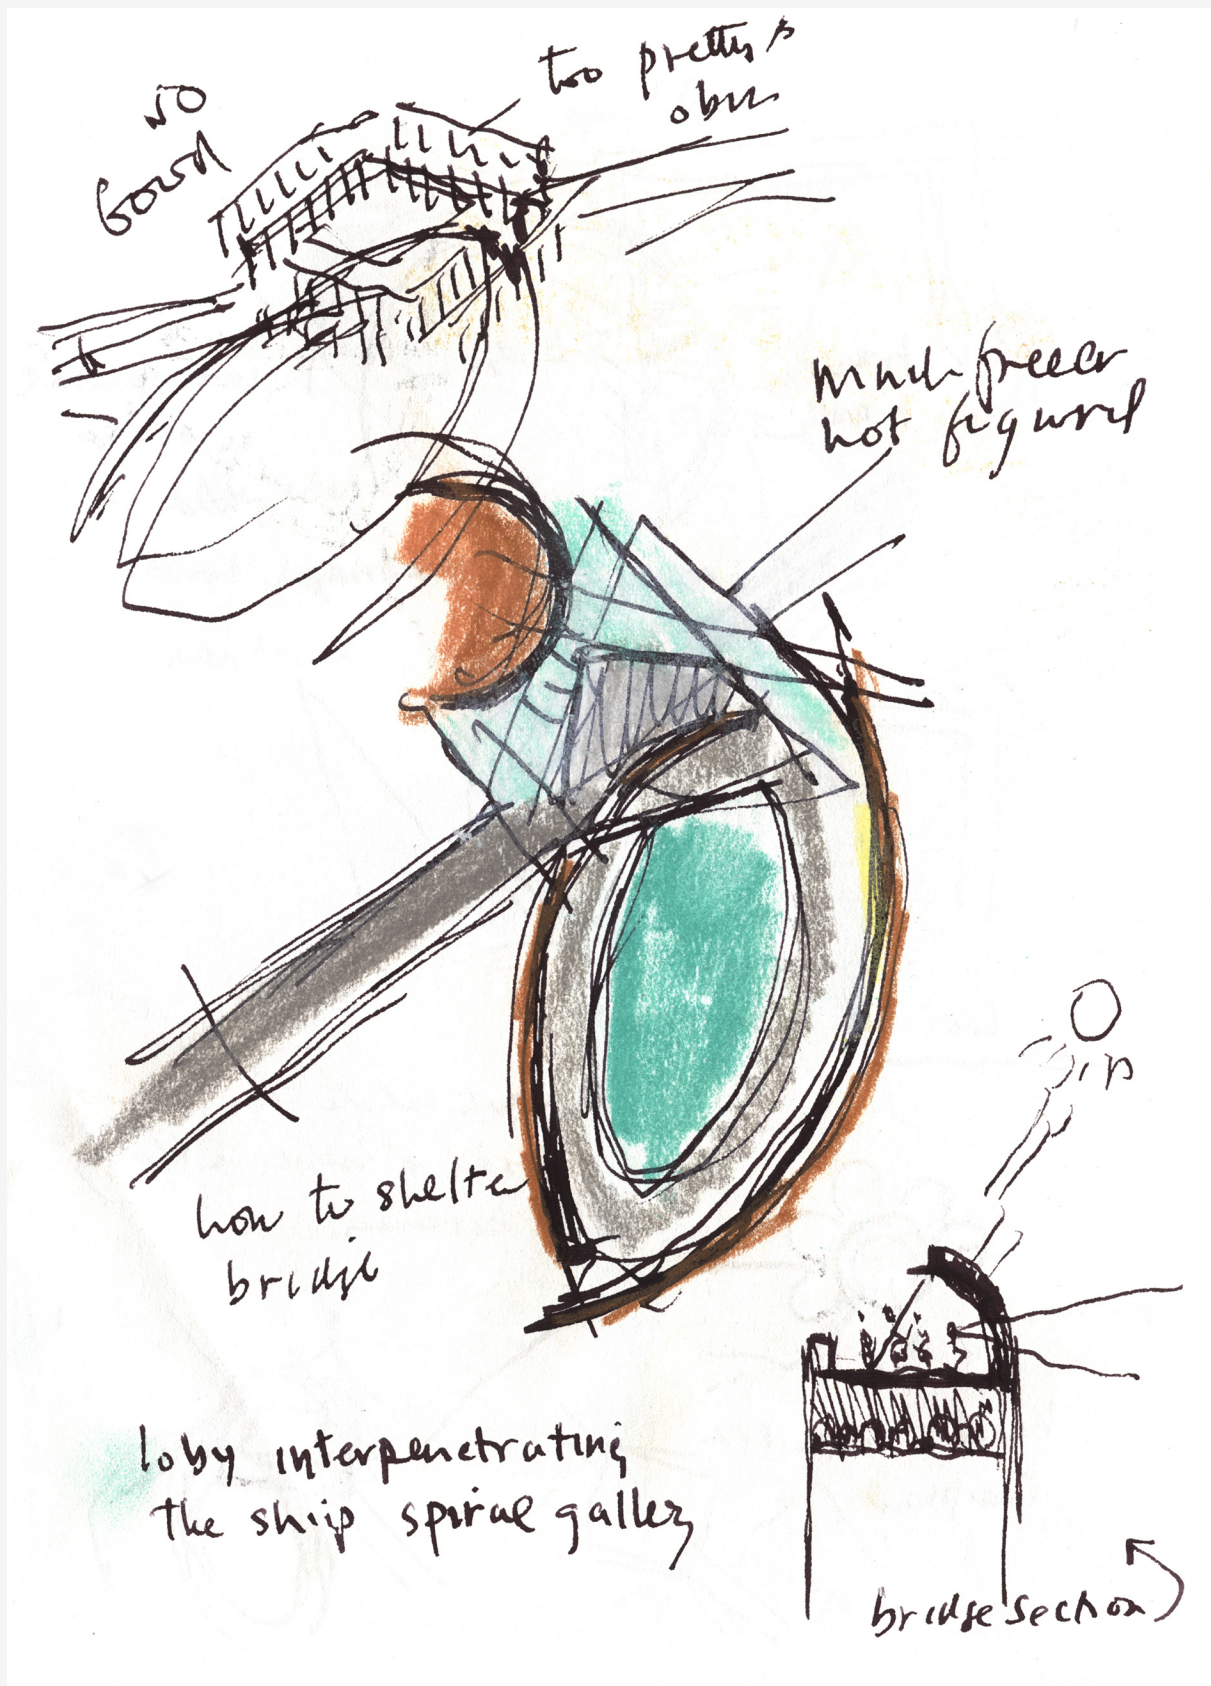 too pretty &
so
bound
much freer
not figural
how to shelter
bridge
loby interpenetrating
the ship spiral gallery
bridge section